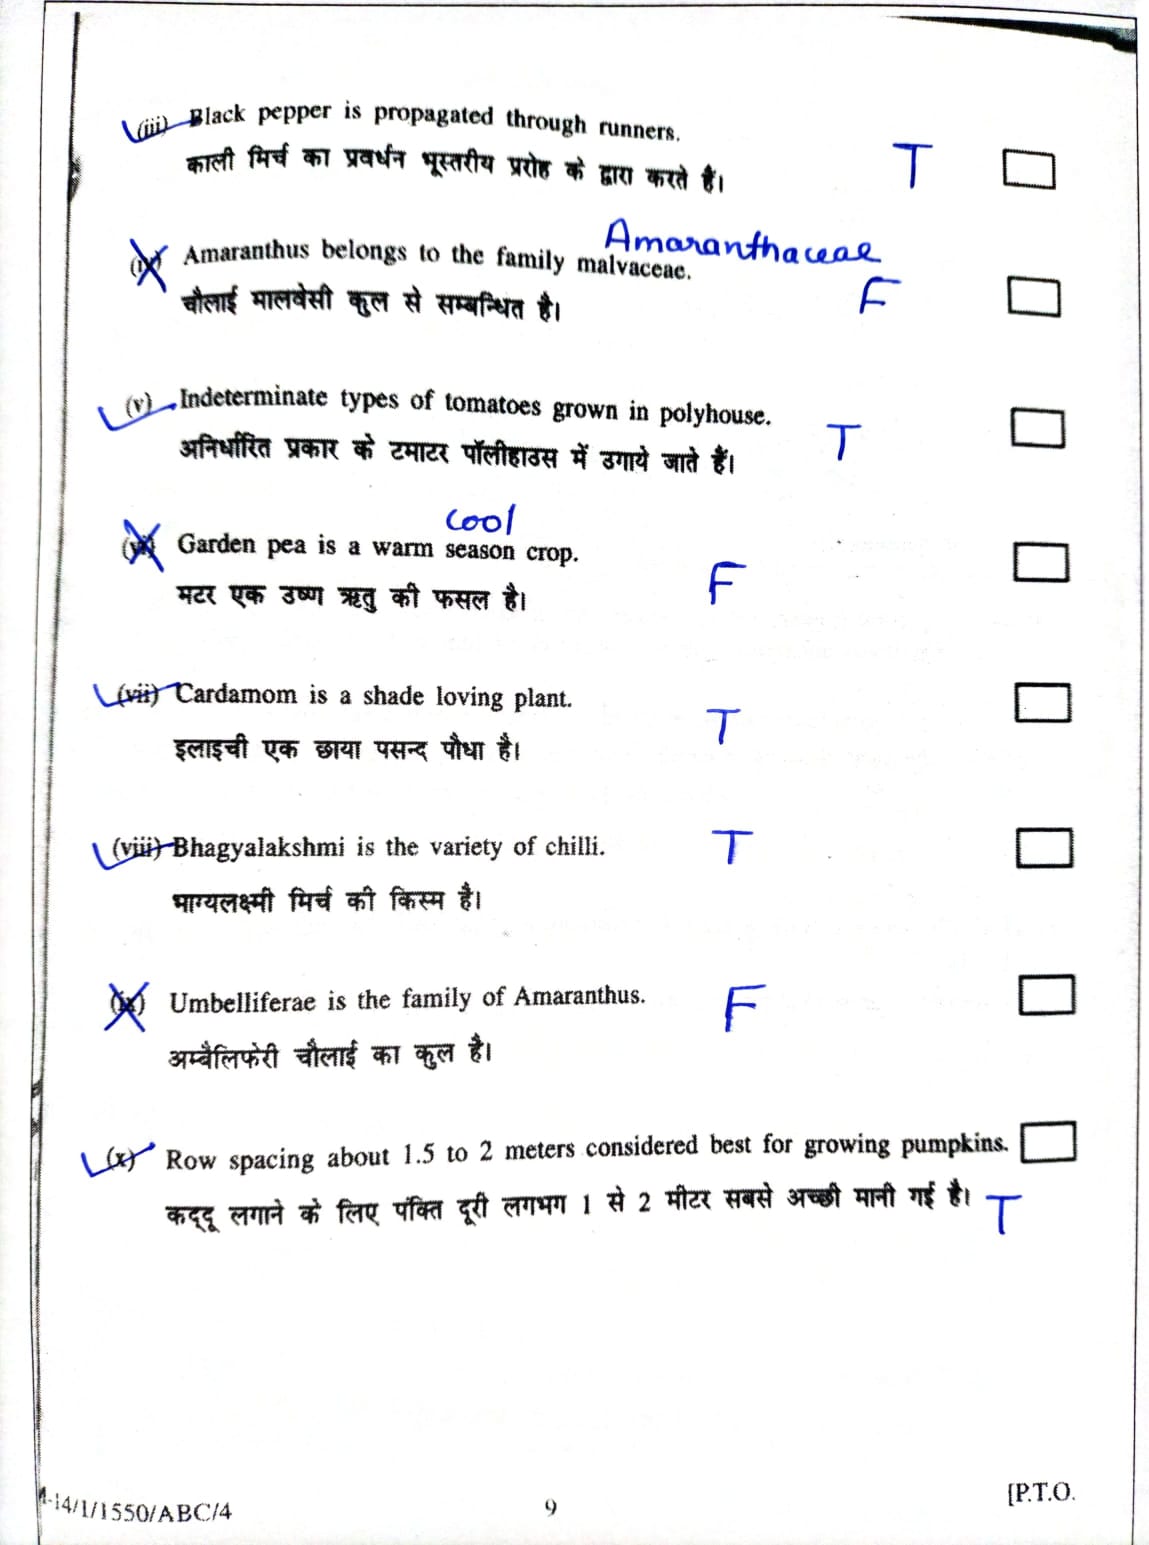 (iii) Black pepper is propagated through runners.
काली मिर्च का प्रवर्धन भूस्तरीय प्ररोह के द्वारा करते हैं।
T
Amaranthaceae
(iv) Amaranthus belongs to the family malvaceae.
चौलाई मालवेसी कुल से सम्बन्धित है।
F
(v) Indeterminate types of tomatoes grown in polyhouse.
अनिर्धारित प्रकार के टमाटर पॉलीहाउस में उगाये जाते हैं।
T
cool
(vi) Garden pea is a warm season crop.
मटर एक उष्ण ऋतु की फसल है।
F
(vii) Cardamom is a shade loving plant.
इलाइची एक छाया पसन्द पौधा है।
T
(viii) Bhagyalakshmi is the variety of chilli.
T
भाग्यलक्ष्मी मिर्च की किस्म है।
(ix) Umbelliferae is the family of Amaranthus.
F
अम्बैलिफेरी चौलाई का कुल है।
(x) Row spacing about 1.5 to 2 meters considered best for growing pumpkins.
कद्दू लगाने के लिए पंक्ति दूरी लगभग 1 से 2 मीटर सबसे अच्छी मानी गई है।
T
-14/1/1550/ABC/4
9
[P.T.O.